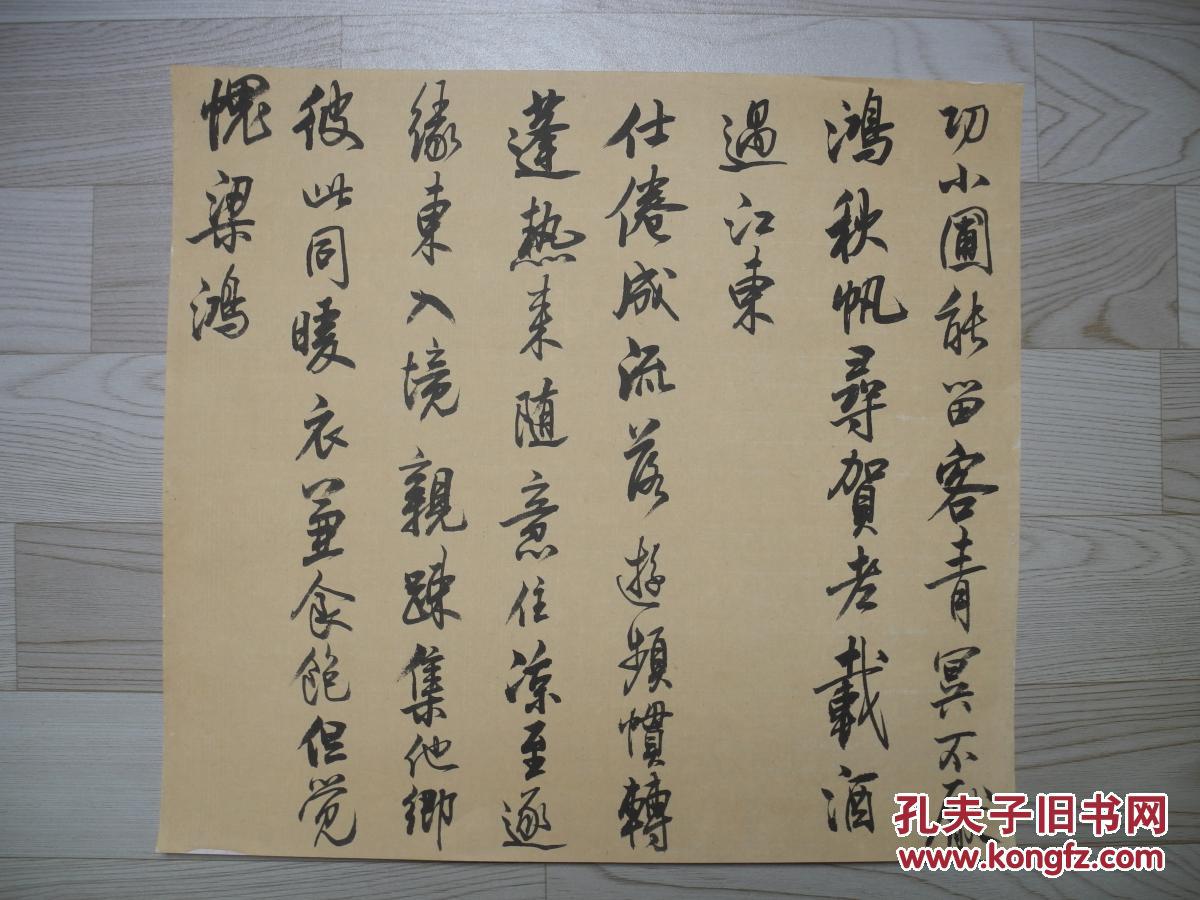 功小圃能留客青冥不厭
鴻秋帆尋賀老載酒
過江東
仕倦成流落遊頻慣轉
蓬熱来隨意住涼至逐
緣東入境親踈集他鄉
彼此同暖衣兼食飽但覚
愧梁鴻
孔夫子旧书网
www.kongfz.com